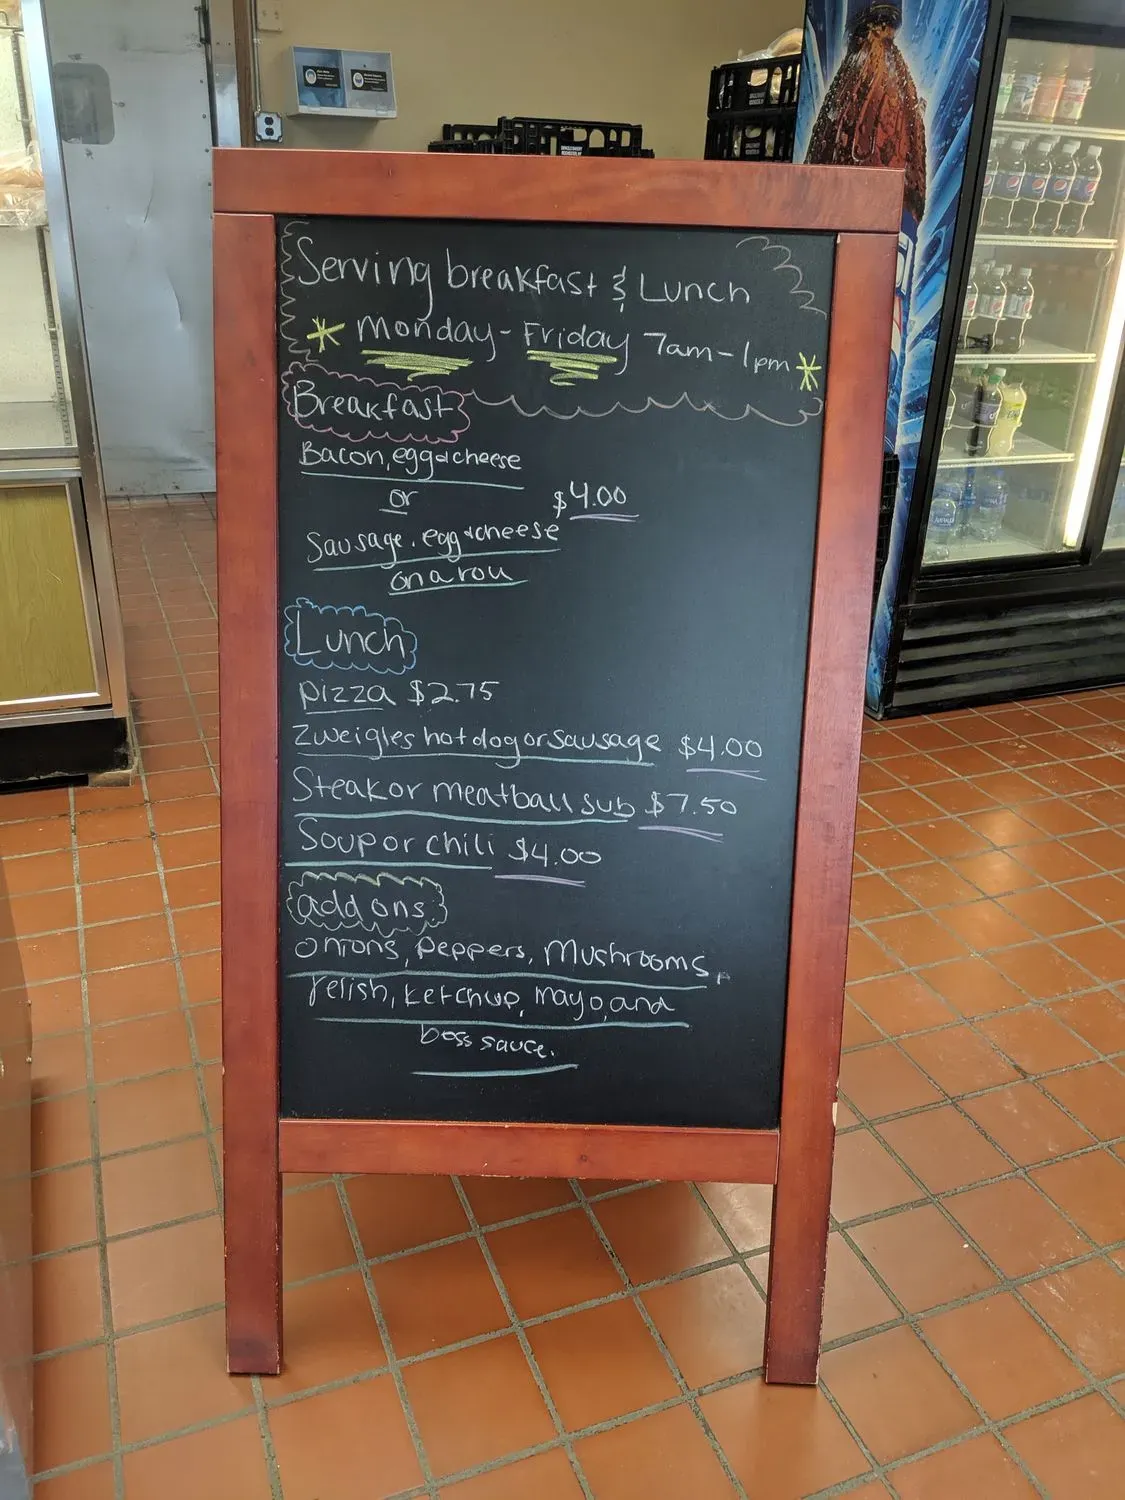 Serving breakfast & Lunch
* Monday - Friday 7am - 1pm *
Breakfast
Bacon, egg & cheese
or
$4.00
Sausage, egg & cheese
on a roll
Lunch
pizza $2.75
Zweigles hot dog or sausage $4.00
Steak or meatball sub $7.50
Soup or chili $4.00
add ons
onions, peppers, Mushrooms,
relish, ketchup, mayo, and
boss sauce.